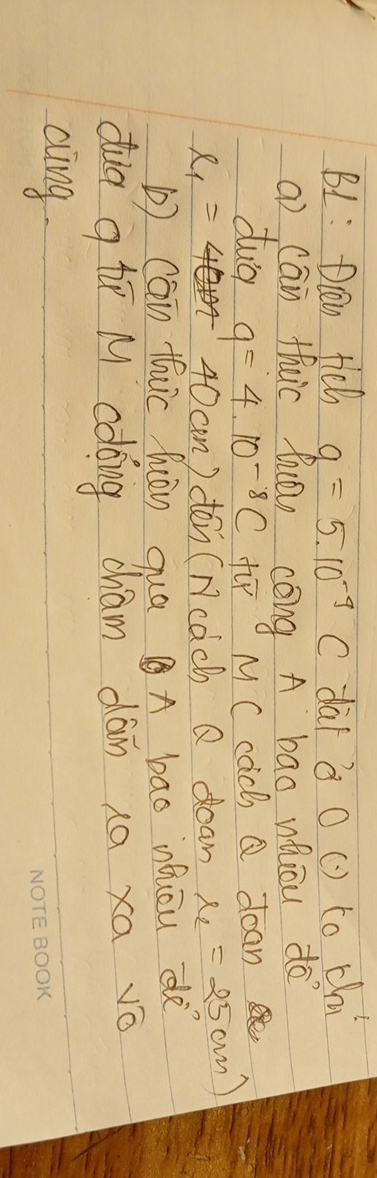 B1: Điện tích q = 5.10⁻⁹ C đặt ở O (.) ko khí
a) Cần thực hiện công A bao nhiêu để
đưa q = 4.10⁻⁸C từ M ( cách Q đoạn
r₁ = 40cm) đến (N cách Q đoạn r₂ = 25cm)
b) Cần thực hiện qua A bao nhiêu để
đưa q từ M cđộng chậm dần ra xa vô
cùng.
NOTE BOOK